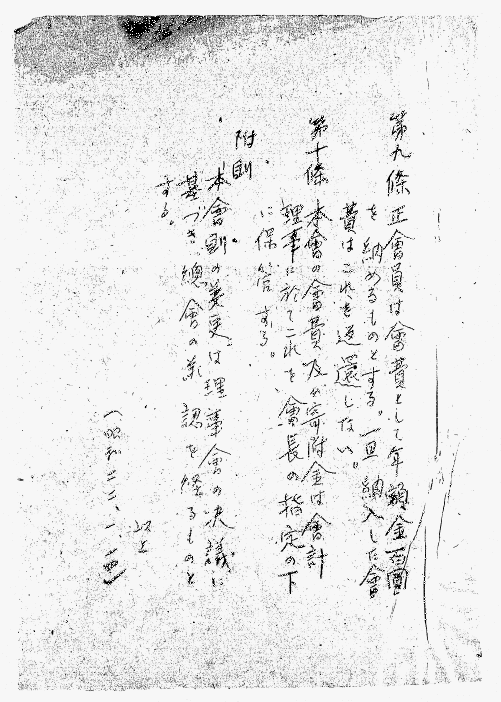 第九條 正會員は會費として年額金百圓
を納めるものとする。一旦納入した會
費はこれを返還しない。
第十條 本會の會費及び寄附金は會計
理事に於てこれを會長の指定の下
に保管する。
附則
本會則の変更は理事會の決議に
基づき總會の承認を経るものと
する。
以上
(昭和二二、一、